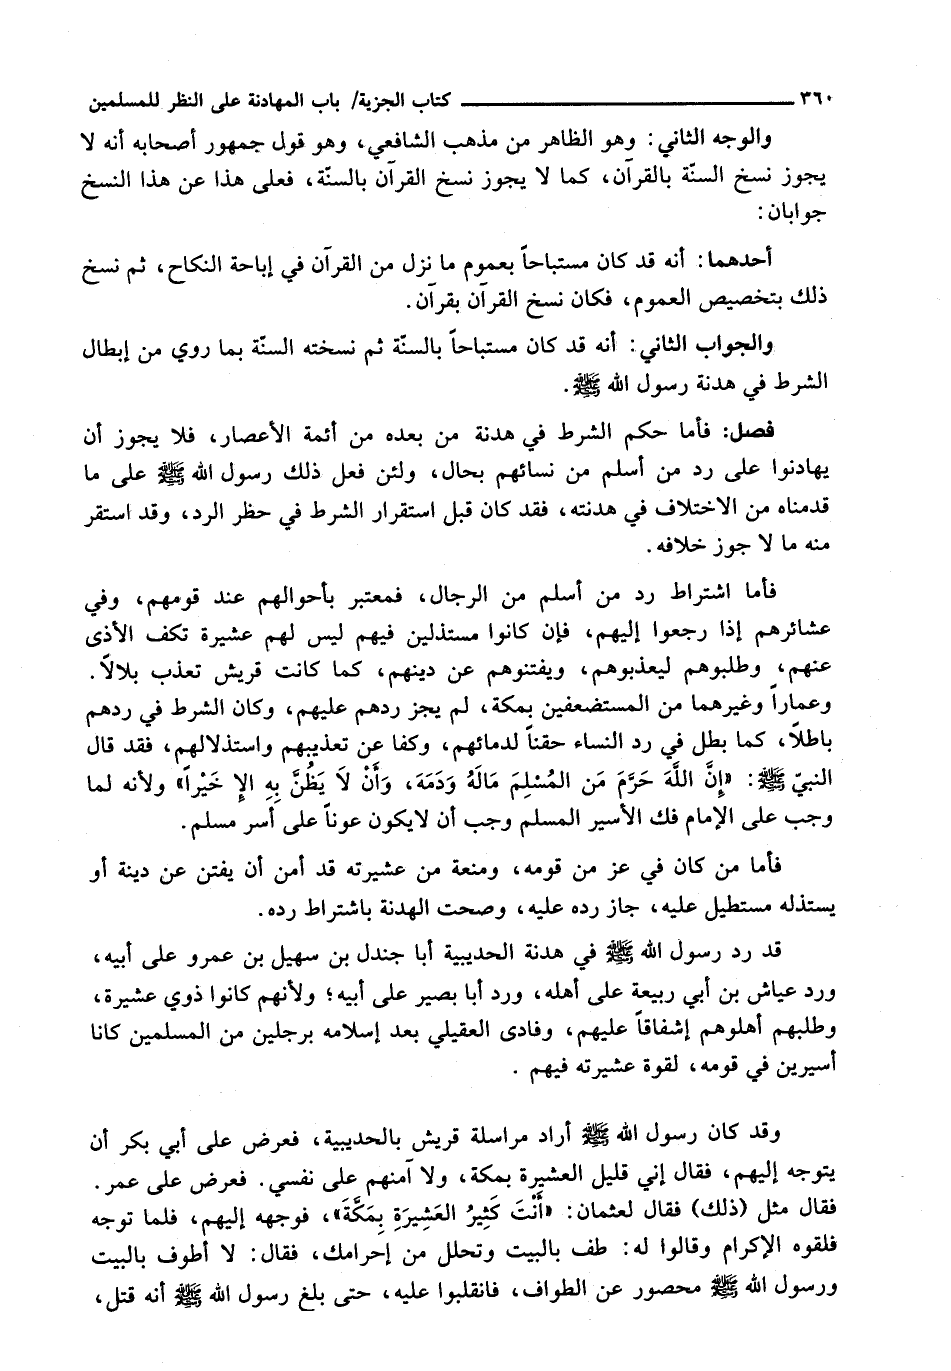 ٣٦٠ كتاب الجزية/ باب المهادنة على النظر للمسلمين
والوجه الثاني: وهو الظاهر من مذهب الشافعي، وهو قول جمهور أصحابه أنه لا
يجوز نسخ السنّة بالقرآن، كما لا يجوز نسخ القرآن بالسنّة، فعلى هذا عن هذا النسخ
جوابان:
أحدهما: أنه قد كان مستباحاً بعموم ما نزل من القرآن في إباحة النكاح، ثم نسخ
ذلك بتخصيص العموم، فكان نسخ القرآن بقرآن.
والجواب الثاني: أنه قد كان مستباحاً بالسنّة ثم نسخته السنّة بما روي من إبطال
الشرط في هدنة رسول الله ﷺ.
فصل: فأما حكم الشرط في هدنة من بعده من أئمة الأعصار، فلا يجوز أن
يهادنوا على رد من أسلم من نسائهم بحال، ولئن فعل ذلك رسول الله ﷺ على ما
قدمناه من الاختلاف في هدنته، فقد كان قبل استقرار الشرط في حظر الرد، وقد استقر
منه ما لا جوز خلافه.
فأما اشتراط رد من أسلم من الرجال، فمعتبر بأحوالهم عند قومهم، وفي
عشائرهم إذا رجعوا إليهم، فإن كانوا مستذلين فيهم ليس لهم عشيرة تكف الأذى
عنهم، وطلبوهم ليعذبوهم، ويفتنوهم عن دينهم، كما كانت قريش تعذب بلالاً.
وعماراً وغيرهما من المستضعفين بمكة، لم يجز ردهم عليهم، وكان الشرط في ردهم
باطلاً، كما بطل في رد النساء حقناً لدمائهم، وكفا عن تعذيبهم واستذلالهم، فقد قال
النبيّ ﷺ: «إِنَّ اللَّهَ حَرَّمَ مَن المُسْلِمَ مَالَهُ وَدَمَهَ، وَأَنْ لَا يَظُنَّ بِهِ الإِ خَيْراً» ولأنه لما
وجب على الإمام فك الأسير المسلم وجب أن لايكون عوناً على أسر مسلم.
فأما من كان في عز من قومه، ومنعة من عشيرته قد أمن أن يفتن عن دينة أو
يستذله مستطيل عليه، جاز رده عليه، وصحت الهدنة باشتراط رده.
قد رد رسول الله ﷺ في هدنة الحديبية أبا جندل بن سهيل بن عمرو على أبيه،
ورد عياش بن أبي ربيعة على أهله، ورد أبا بصير على أبيه؛ ولأنهم كانوا ذوي عشيرة،
وطلبهم أهلوهم إشفاقاً عليهم، وفادى العقيلي بعد إسلامه برجلين من المسلمين كانا
أسيرين في قومه، لقوة عشيرته فيهم .
وقد كان رسول الله ﷺ أراد مراسلة قريش بالحديبية، فعرض على أبي بكر أن
يتوجه إليهم، فقال إني قليل العشيرة بمكة، ولا آمنهم على نفسي. فعرض على عمر.
فقال مثل (ذلك) فقال لعثمان: «أَنْتَ كَثِيرُ العَشِيرَةِ بِمَكَّةَ»، فوجهه إليهم، فلما توجه
فلقوه الإكرام وقالوا له: طف بالبيت وتحلل من إحرامك، فقال: لا أطوف بالبيت
ورسول الله ﷺ محصور عن الطواف، فانقلبوا عليه، حتى بلغ رسول الله ﷺ أنه قتل،